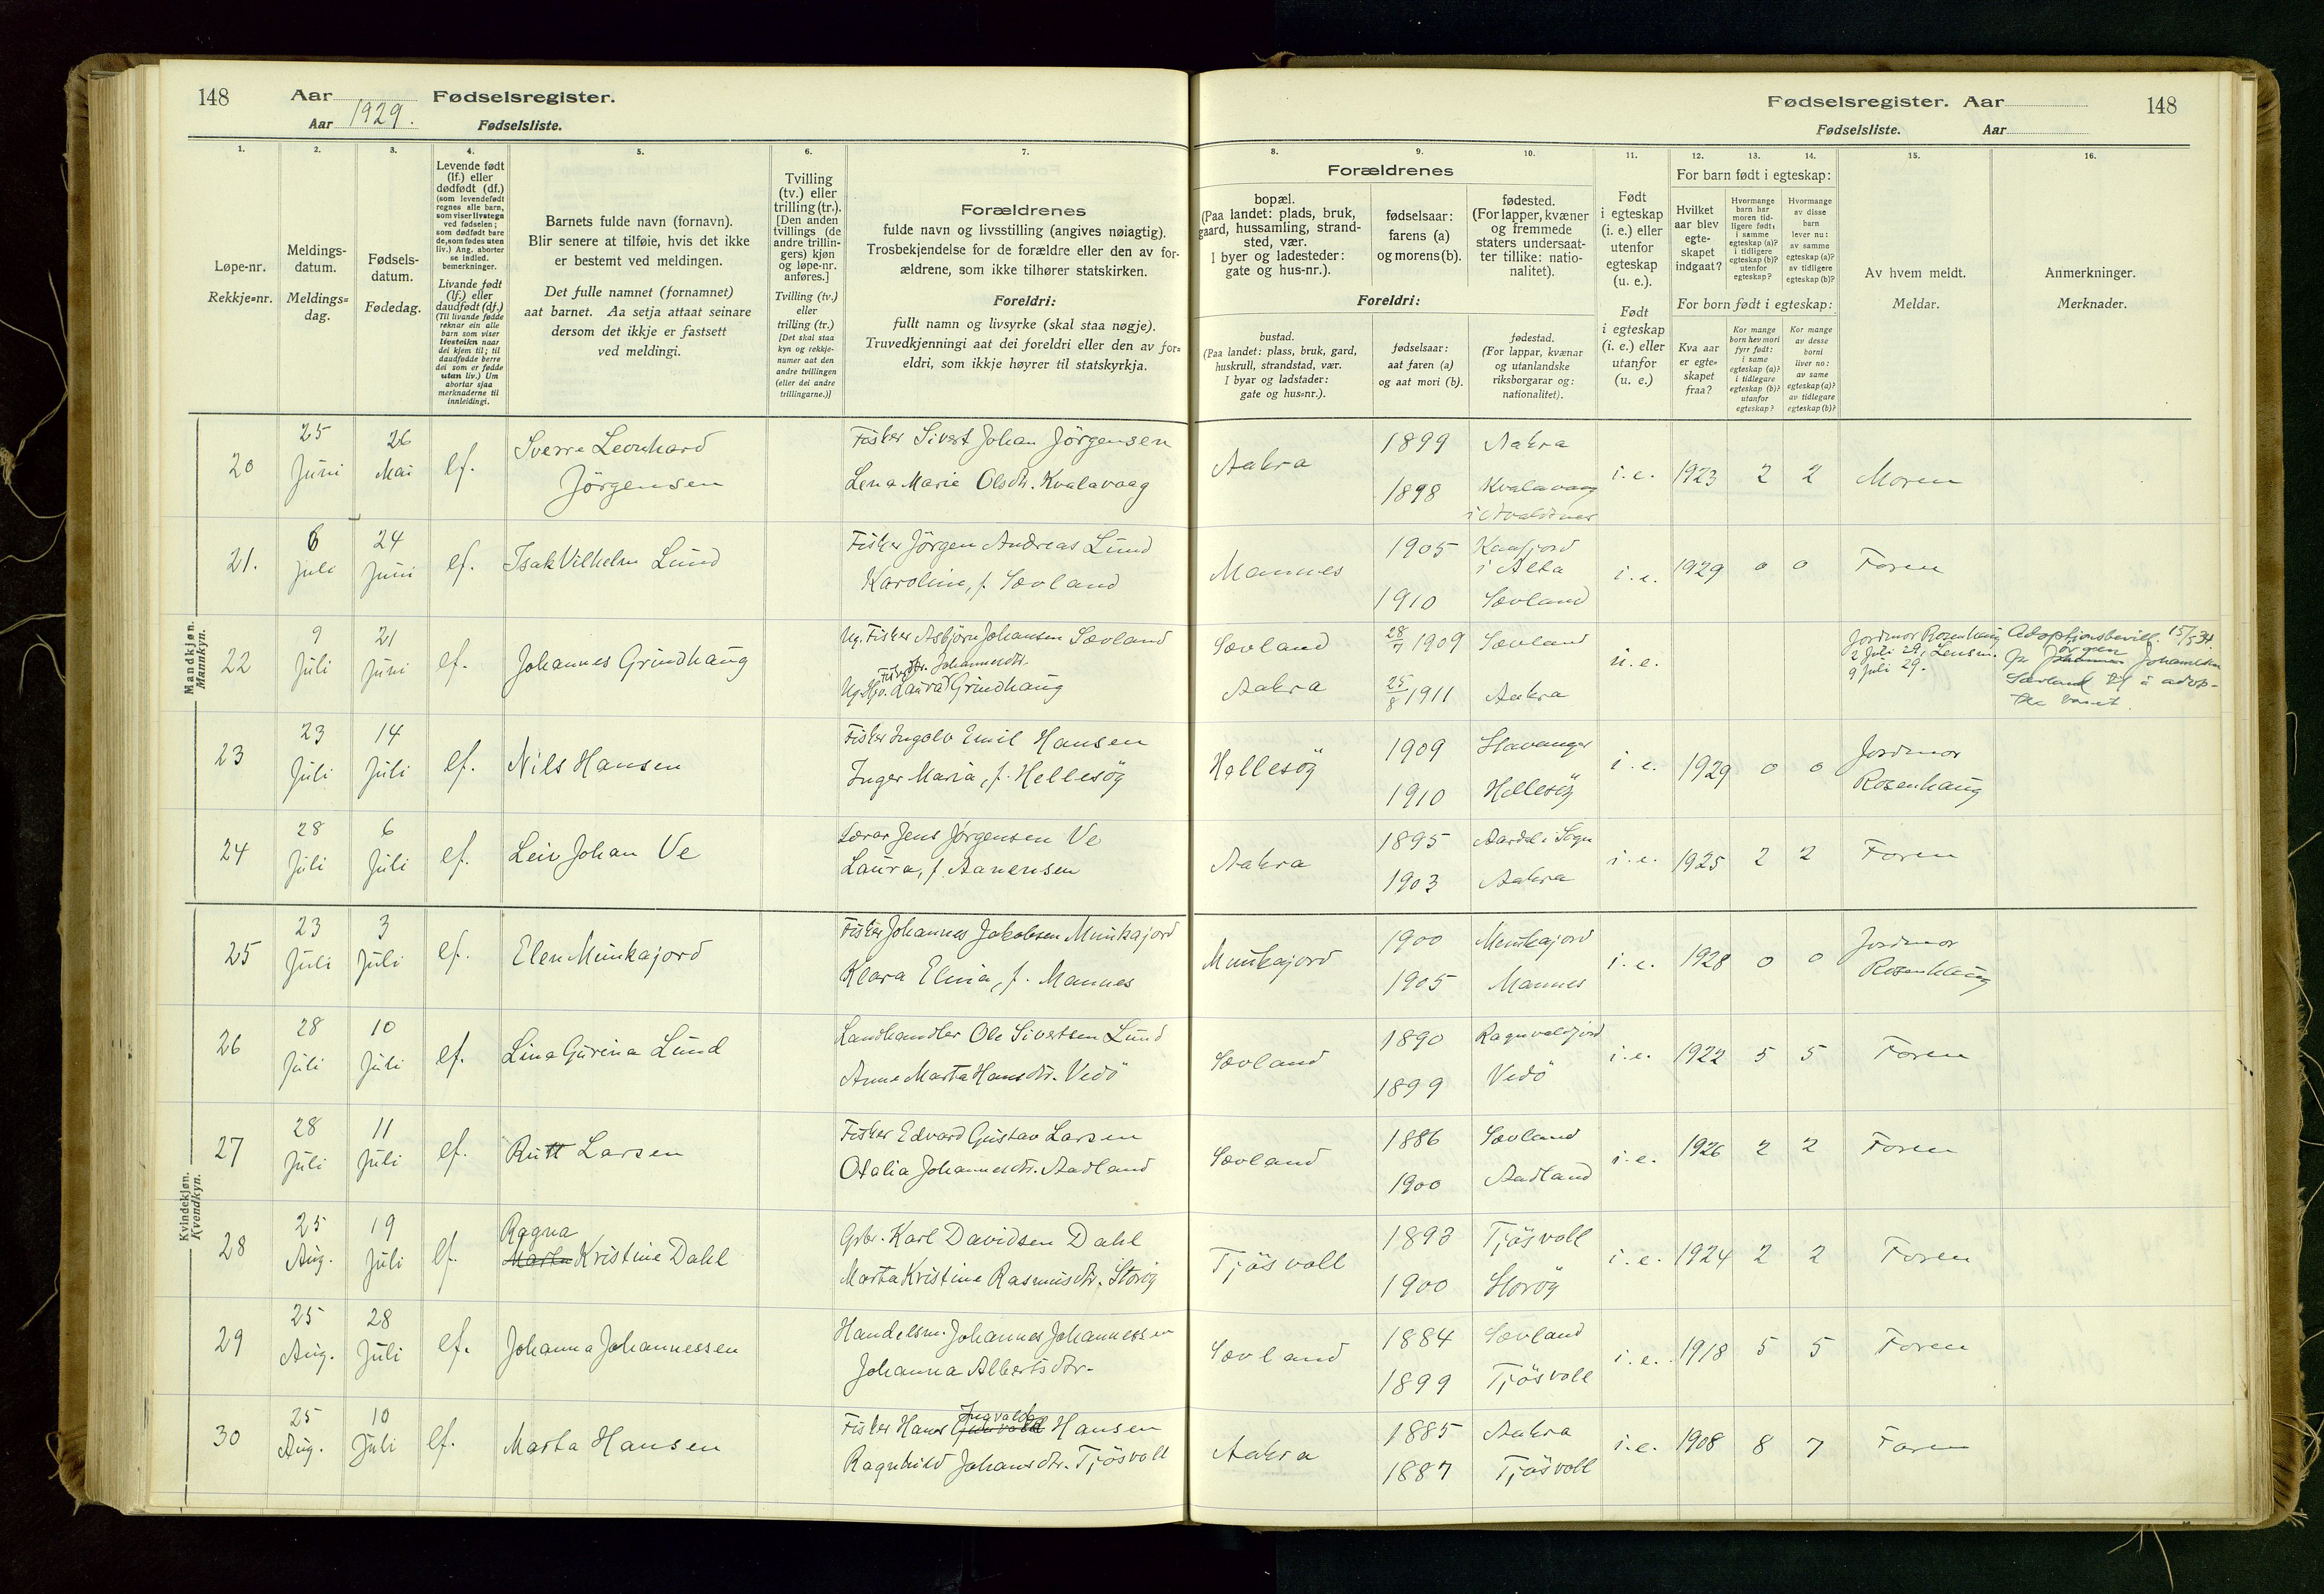 148 Aar 1929. Fødselsregister.
Aar Fødselsliste.
1. 2. 3. 4. 5. 6. 7.
Løpe-nr.
Rekkje=nr.
Meldings-
datum.
Meldings=
dag.
Fødsels-
datum.
Fødedag.
Levende født
(lf.) eller
dødfødt (df.)
(som levendefødt
regnes alle barn,
som viser livstegn
ved fødselen;
som dødfødt bare
de, som fødes uten
liv.) Ang. aborter
se indled.
bemerkninger.
Livande født
(lf.) eller
daudfødt (df.)
(Til livande fødde
reknar ein alle
barn som viser
livsteikn naar
dei kjem til; til
daudfødde berre
dei som er fødde
utan liv.) Um
abortar sjaa
merknaderne til
innleidingi.
Barnets fulde navn (fornavn).
Blir senere at tilføie, hvis det ikke
er bestemt ved meldingen.
Det fulle namnet (fornamnet)
aat barnet. Aa setja attaat seinare
dersom det ikkje er fastsett
ved meldingi.
Tvilling
(tv.) eller
trilling (tr.).
[Den anden
tvillings (de
andre trillin-
gers) kjøn
og løpe-nr.
anføres.]
Tvilling (tv.)
eller
trilling (tr.)
[Det skal staa
kyn og rekkje-
numer aat den
andre tvillingen
(eller dei andre
trillingarne.)]
Forældrenes
fulde navn og livsstilling (angives nøiagtig).
Trosbekjendelse for de forældre eller den av for-
ældrene, som ikke tilhører statskirken.
Foreldri:
fullt namn og livsyrke (skal staa nøgje).
Truvedkjenningi aat dei foreldri eller den av for=
eldri, som ikkje høyrer til statskyrkja.
Mandkjøn.
Mannkyn.
20 25 Juni 26 Mai lf. Sverre Leonhard
Jörgensen
Fisker Sivert Johan Jörgensen
Lena Marie Olsdtr. Kvalavaag
21. 6 Juli 24 Juni lf. Isak Vilhelm Lund
Fisker Jörgen Andreas Lund
Karoline, f. Sævland
22 9 Juli 21 Juni lf. Johannes Grindhaug
Ug. Fisker Asbjörn Johansen Sævland
Johannesdtr.
Laura Grindhaug
23 23 Juli 14 Juli lf. Nils Hansen
Fisker Ingolv Emil Hansen
Inger Maria, f. Hellesöy
24 28 Juli 6 Juli lf. Leiv Johan Ve
Lærar Jens Jørgensen Ve
Laura, f. Aanensen
Kvindekjøn.
Kvendkyn.
25 23 Juli 3 Juli lf. Elen Munkajord
Fisker Johannes Jakobsen Munkajord
Klara Elina, f. Mannes
26 28 Juli 10 Juli lf. Lina Gurina Lund
Landhandler Ole Sivertsen Lund
Anne Marta Hansdtr. Vedö
27 28 Juli 11 Juli lf. Rutt Larsen
Fisker Edvard Gustav Larsen
Otalia Johannesdtr. Aadland
28 25 Aug. 19 Juli lf. Ragna
Marta Kristine Dahl
Gbr. Karl Davidsen Dahl
Marta Kristine Rasmusdtr. Storöy
29 25 Aug. 28 Juli lf. Johanna Johannessen
Handelsm. Johannes Johannessen
Johanna Albertsdtr.
30 25 Aug. 10 Juli lf. Marta Hansen
Ingvald
Fisker Hans Hansen
Ragnhild Johansdtr. Tjösvoll
Fødselsregister. Aar 148
Fødselsliste. Aar
8. 9. 10. 11. 12. 13. 14. 15. 16.
Forældrenes
bopæl.
(Paa landet: plads, bruk,
gaard, hussamling, strand-
sted, vær.
I byer og ladesteder:
gate og hus-nr.).
fødselsaar:
farens (a)
og morens (b).
fødested.
(For lapper, kvæner
og fremmede
staters undersaat-
ter tillike: natio-
nalitet).
Foreldri:
bustad.
(Paa landet: plass, bruk, gard,
huskrull, strandstad, vær.
I byar og ladstader:
gate og hus=nr.).
fødselsaar:
aat faren (a)
og aat mori (b).
fødestad.
(For lappar, kvænar
og utanlandske
riksborgarar og:
nationalitet).
Født
i egteskap
(i. e.) eller
utenfor
egteskap
(u. e.).
Født
i egteskap
(i. e.) eller
utanfor
egteskap
(u. e.)
For barn født i egteskap:
Hvilket
aar blev
egte-
skapet
indgaat?
Hvormange
barn har
moren tid-
ligere født:
i samme
egteskap (a)?
i tidligere
egteskap (b)?
utenfor
egteskap?
Hvormange
av disse
barn
lever nu:
av samme
egteskap (a)?
av tidligere
egteskap (b)?
For born født i egteskap:
Kva aar
er egte-
skapet
fraa?
Kor mange
born hev mori
fyrr født:
i same
egteskap (a)?
i tidlegare
egteskap (b)?
utanfor
egteskap?
Kor mange
av desse
borni
liver no:
av same
egteskap (a)?
av tidlegare
egteskap (b)?
Av hvem meldt.
Meldar.
Anmerkninger.
Merknader.
Aakra 1899 Aakra i. e. 1923 2 2 Moren
1898 Kvalavaag
i Avaldsnes
Mannes 1905 Kaafjord
i Alta i. e. 1929 0 0 Faren
1910 Sævland
Sævland 28/7 1909 Sævland u. e.
Aakra 25/8 1911 Aakra
Jordmor Rosenhaug
2 Juli 29, Lensm.
9 Juli 29.
Adoptionsbevill. 15/5 34
Jörgen
fr Johannes Johannesen
Sævland til å adop-
tere barnet.
Hellesöy 1909 Stavanger i. e. 1929 0 0 Jordmor
1910 Hellesöy Rosenhaug
Aakra 1895 Aardal i Sogn i. e. 1925 2 2 Faren
1903 Aakra
Munkajord 1900 Munkajord i. e. 1928 0 0 Jordmor
1905 Mannes Rosenhaug
Sævland 1890 Ragnvaldsjord i. e. 1922 5 5 Faren
1899 Vedö
Sævland 1886 Sævland i. e. 1926 2 2 Faren
1900 Aadland
Tjösvoll 1893 Tjösvoll i. e. 1924 2 2 Faren
1900 Storöy
Sævland 1884 Sævland i. e. 1918 5 5 Faren
1899 Tjösvoll
Aakra 1885 Aakra i. e. 1908 8 7 Faren
1887 Tjösvoll